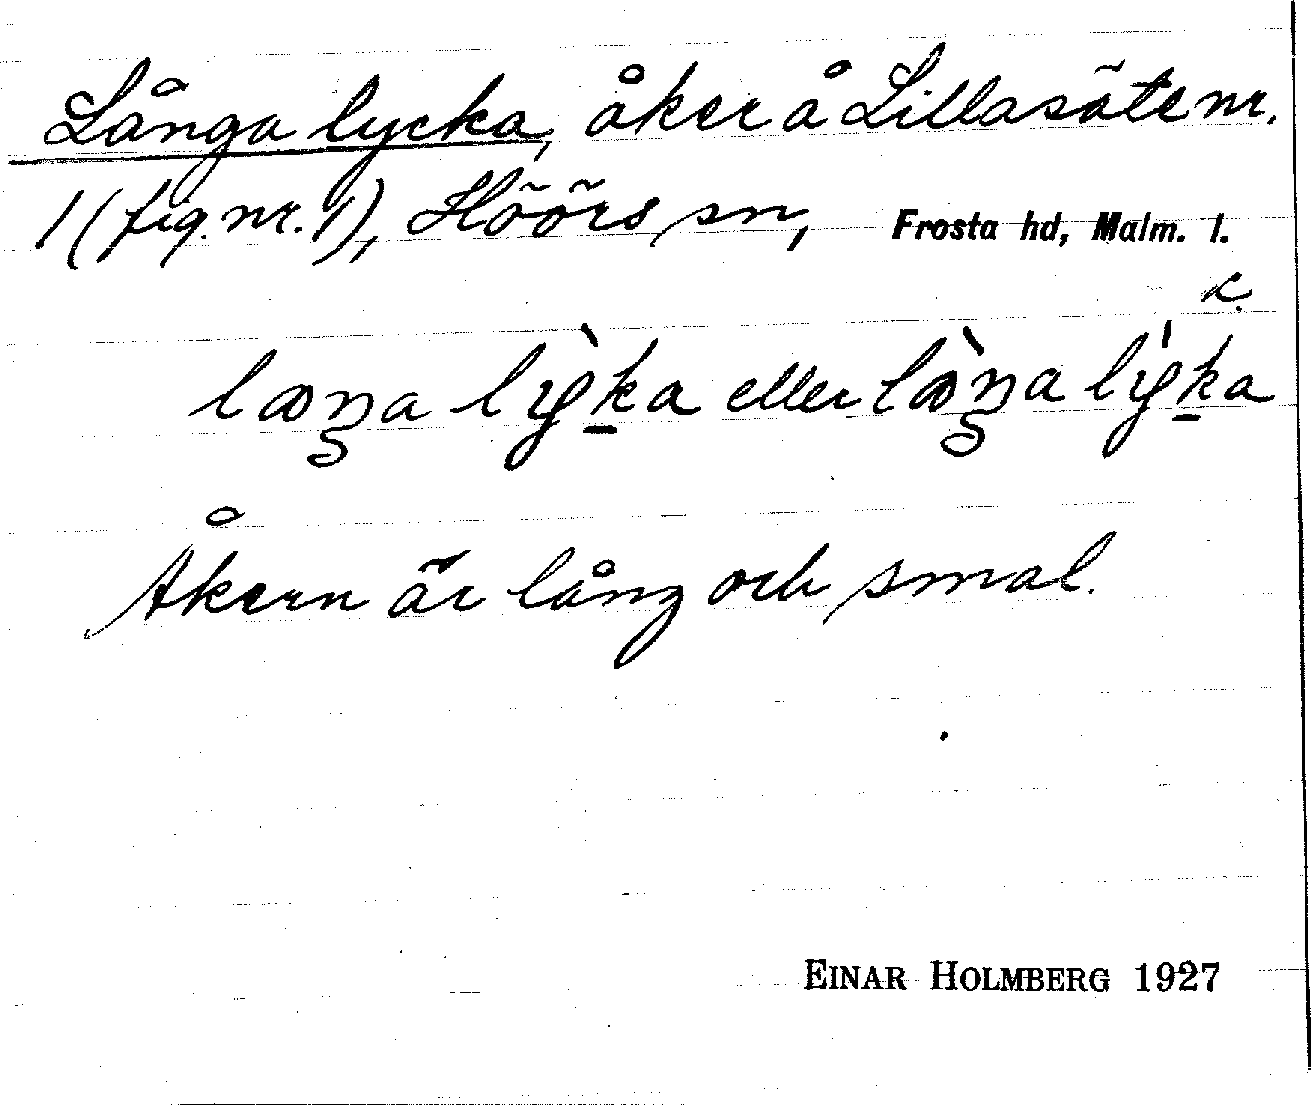 Långa lycka, åker å Lillasäte nr.
1 (fig. nr. 1), Höörs sn, Frosta hd, Malm. l.
k.
laŋa lỳka eller làŋa lýka
Åkern är lång och smal.
EINAR HOLMBERG 1927